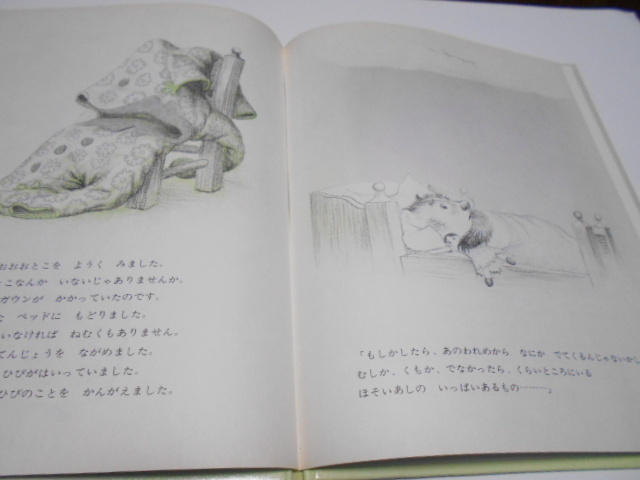 おおおとこを ようく みました。
こなんか いないじゃありませんか。
ガウンが かかっていたのです。
ベッドに もどりました。
いなければ ねむくもありません。
てんじょうを ながめました。
ひびがはいっていました。
ひびのことを かんがえました。
「もしかしたら、あのわれめから なにか でてくるんじゃないかし
むしか、くもか、でなかったら、くらいところにいる
ほそいあしの いっぱいあるもの………」